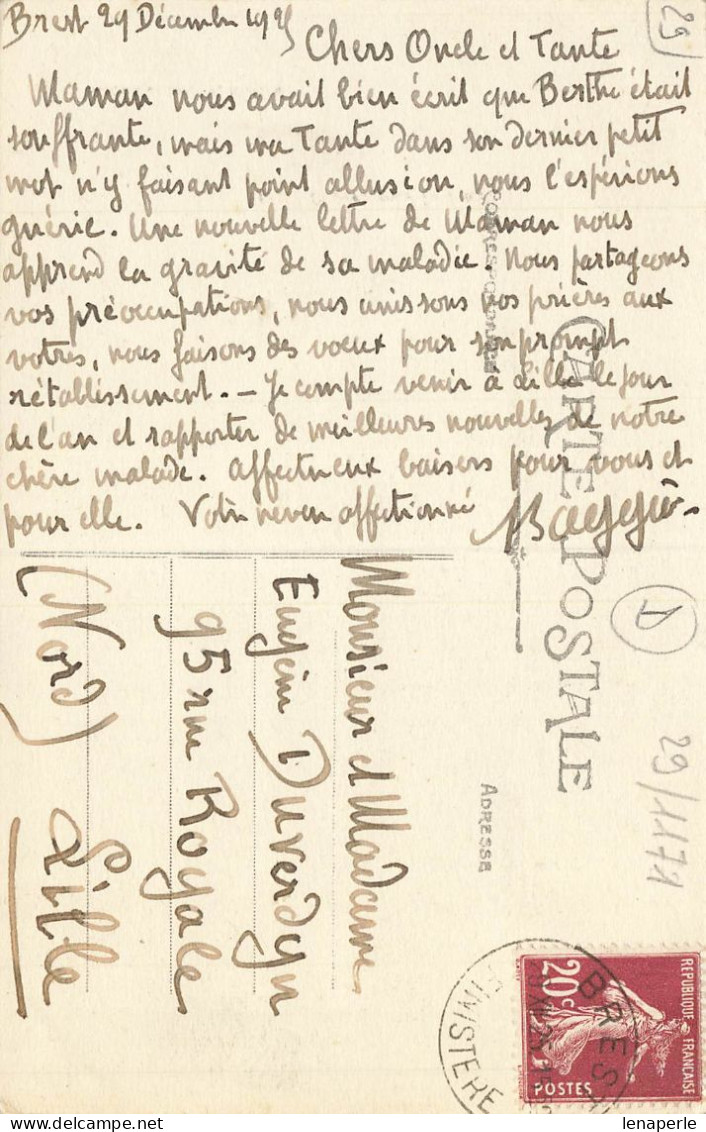 Brest 29 Décembre 1925
29
Chers Oncle et Tante
Maman nous avait bien écrit que Berthe était
souffrante, mais ma Tante dans son dernier petit
mot n'y faisant point allusion, nous l'espérions
guérie. Une nouvelle lettre de Maman nous
apprend la gravité de sa maladie. Nous partageons
vos préoccupations, nous unissons nos prières aux
votres, nous faisons des voeux pour son prompt
rétablissement. — Je compte venir à Lille le jour
de l'an et rapporter de meilleures nouvelles de notre
chère malade. Affectueux baisers pour vous et
pour elle. Votre neveu affectionné
CARTE POSTALE
CORRESPONDANCE
ADRESSE
Monsieur et Madame
Eugène Duverdyn
95 rue Royale
Lille
(Nord)
D
29/1171
RÉPUBLIQUE FRANÇAISE
20c
POSTES
BREST
FINISTERE
lenaperle